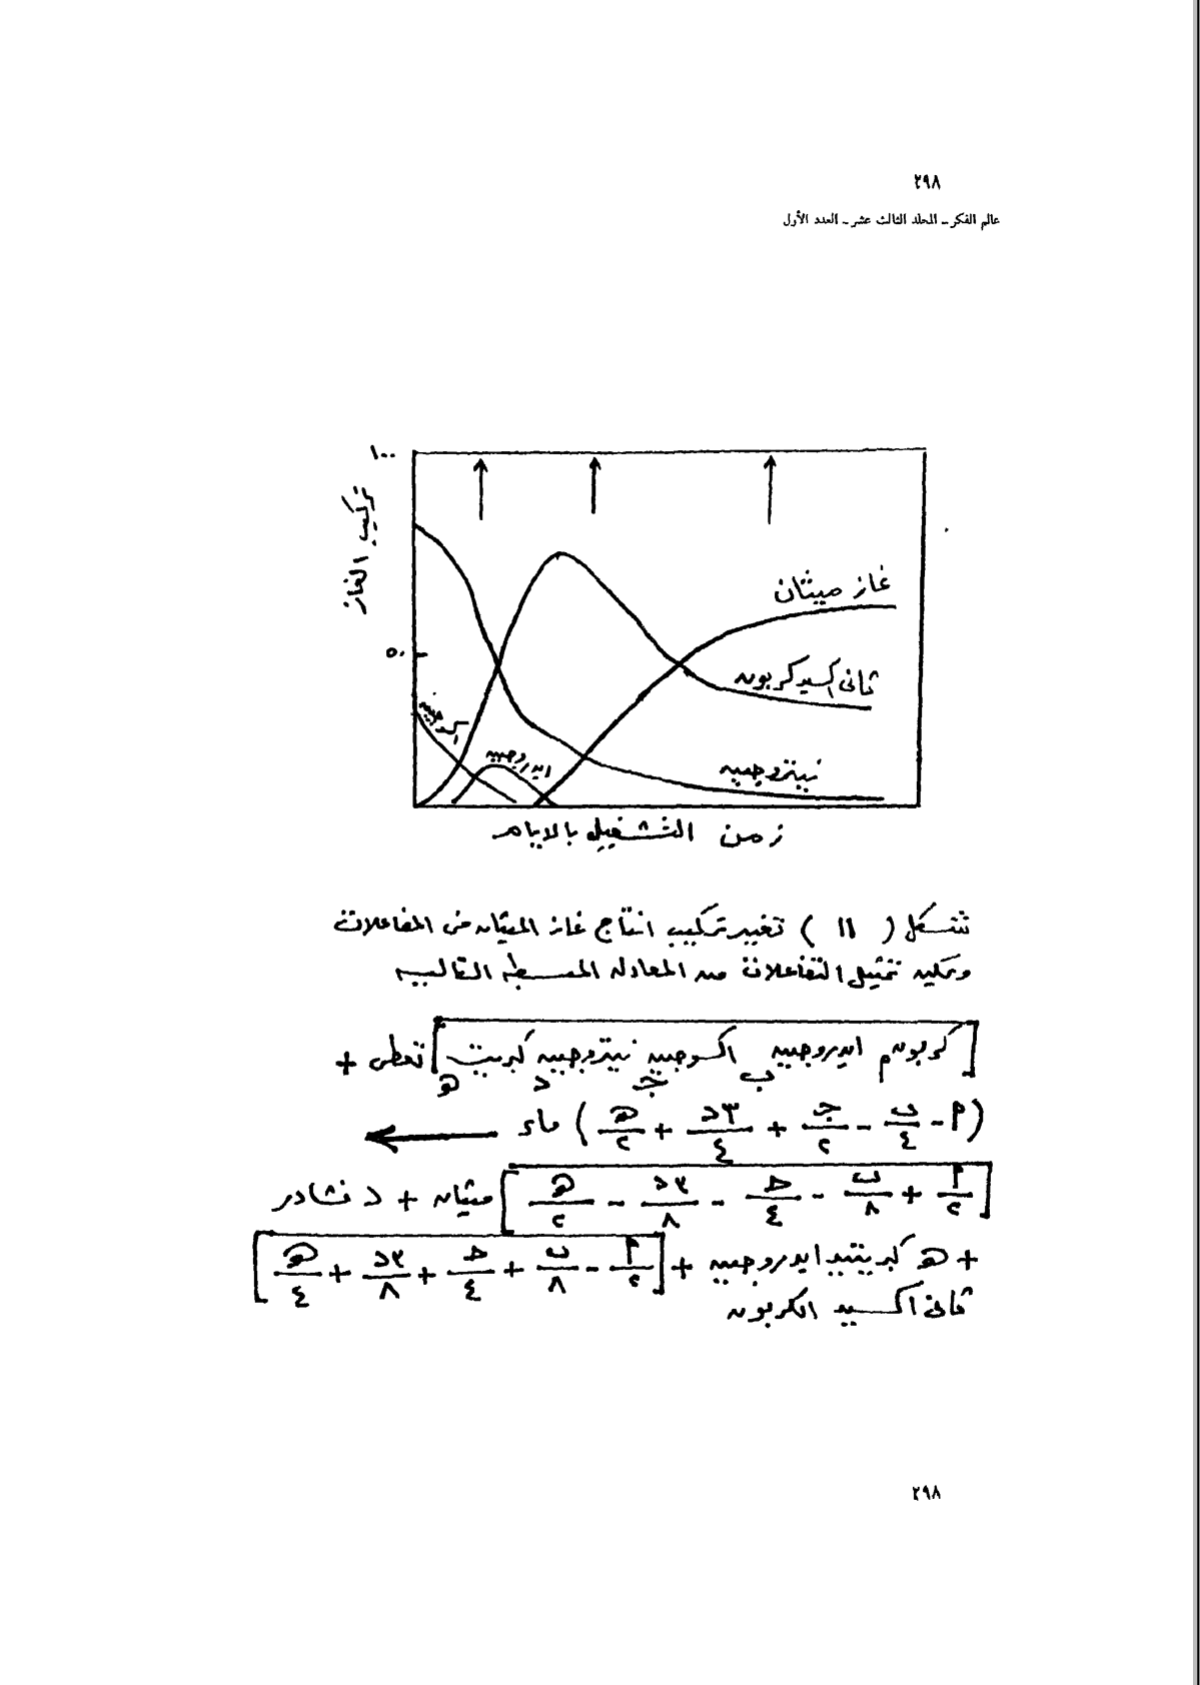 ٢٩٨
عالم الفكر ـ المجلد الثالث عشر ـ العدد الأول
١٠٠
تركيب الغاز
٥٠
غاز ميثان
ثانى اكسيد كربون
نيتروجين
ايدروجين
اكسوجين
زمن التشغيل بالايام
شكل ( ١١ ) تغير تركيب انتاج غاز الميثان فى المفاعلات
ويمكن تمثيل التفاعلات من المعادله المبسطه التاليه
[كربون م ايدروجين ب اكسوجين جـ نيتروجين د كبريت هـ] تعطى +
(م - ب/٤ - جـ/٢ + ٣د/٤ + هـ/٢) ماء ←
[م/٢ + ب/٨ - جـ/٤ - ٣د/٨ - هـ/٢] ميثان + د نشادر
+ هـ كبريتيد ايدروجين + [م/٢ - ب/٨ + جـ/٤ + ٣د/٨ + هـ/٤]
ثانى اكسيد الكربون
٢٩٨